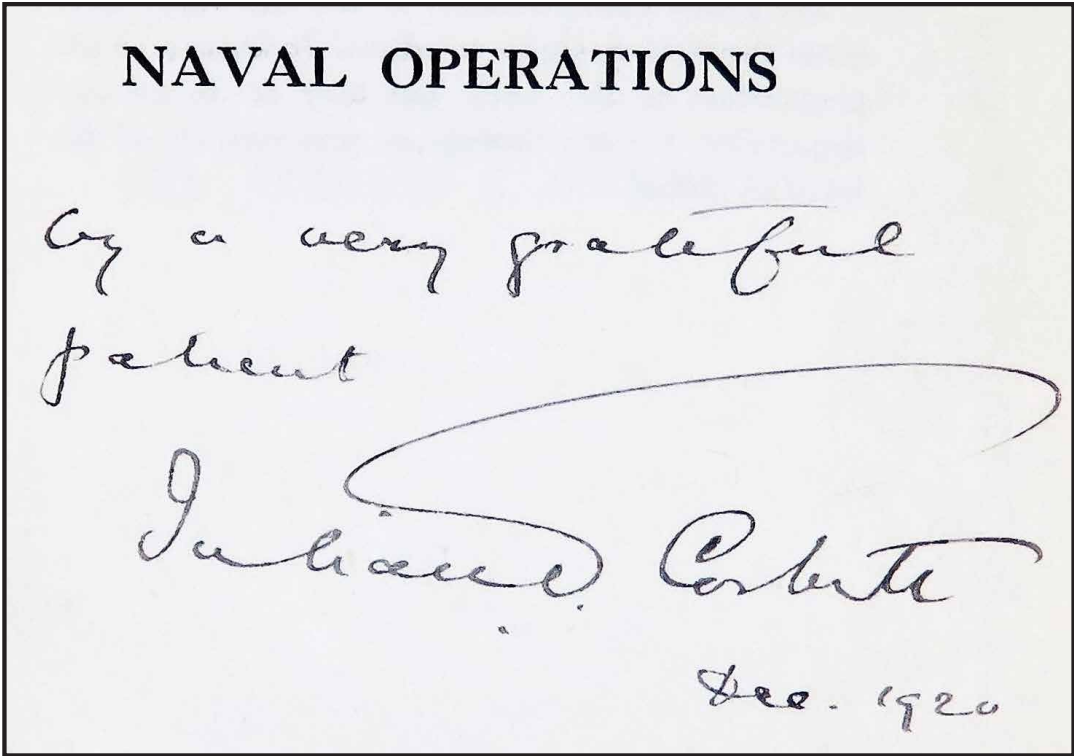 NAVAL OPERATIONS
by a very grateful
patient
Julian D. Corbett
Dec. 1920